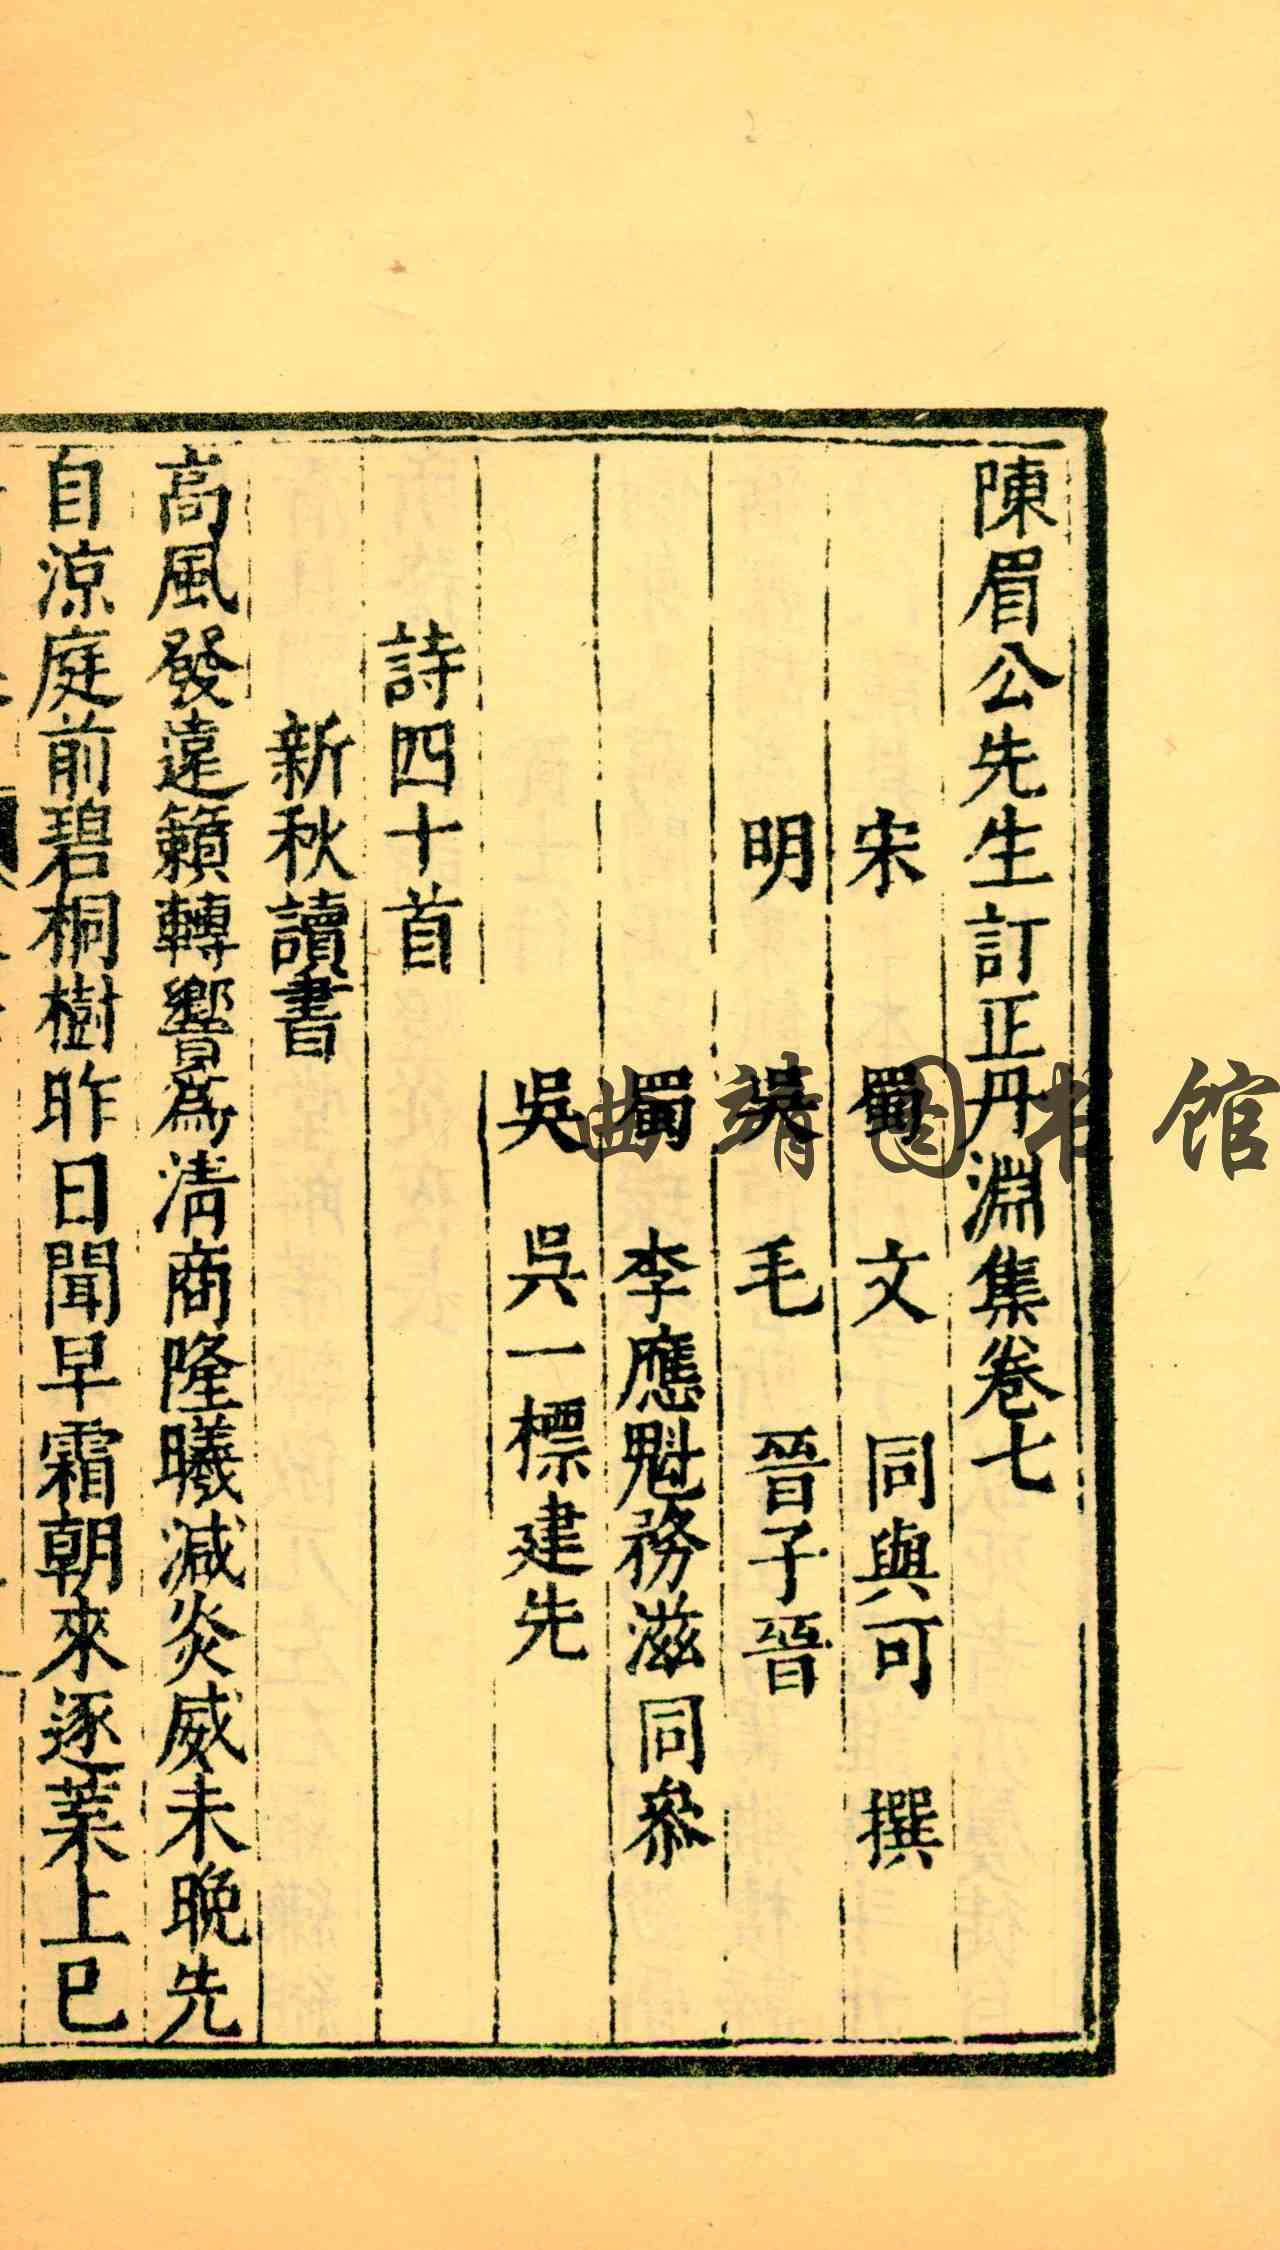 陳眉公先生訂正丹淵集卷七
宋　蜀　文　同與可　撰
明　吳　毛　晉子晉
蜀　李應魁務滋同叅
吳　吳一標建先
詩四十首
新秋讀書
高風發遠籟轉響爲清商隆曦減炎威未晚先
自涼庭前碧桐樹昨日聞早霜朝來逐葉上已
曲靖图书馆